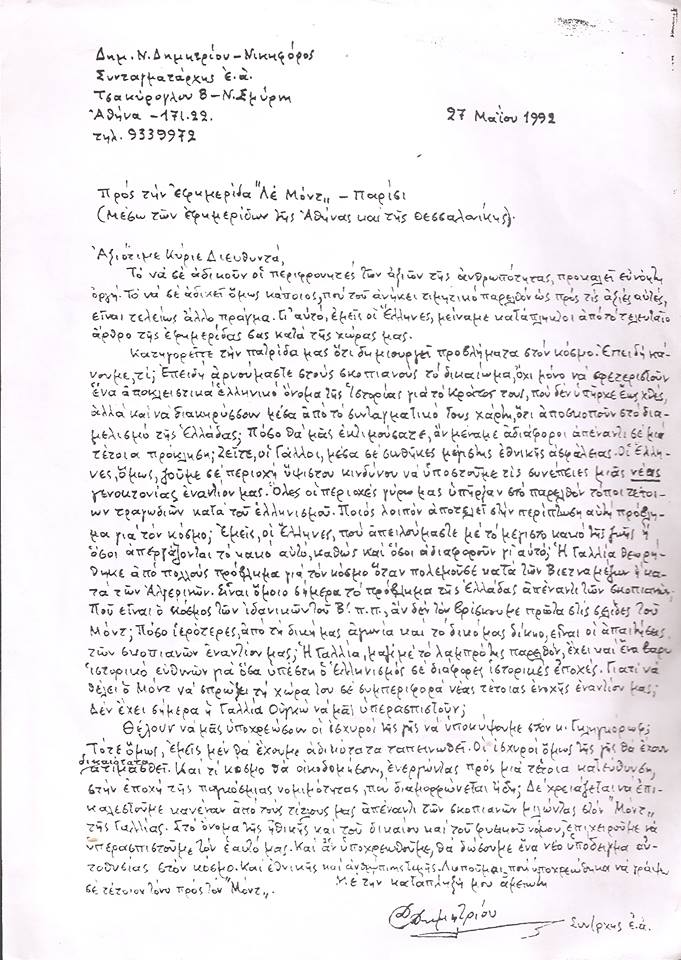 Δημ. Ν. Δημητρίου - Νικηφόρος
Συνταγματάρχης ἐ.ἀ.
Τσακύρογλου 8 - Ν. Σμύρνη
Ἀθήνα - 171.22.
τηλ. 9339972
27 Μαΐου 1992
Πρός τήν ἐφημερίδα "Λέ Μόντ„ - Παρίσι
(Μέσω τῶν ἐφημερίδων τῆς Ἀθήνας καί τῆς Θεσσαλονίκης).
Ἀξιότιμε Κύριε Διευθυντά,
Τό νά σέ ἀδικοῦν οἱ περιφρονητές τῶν ἀξιῶν τῆς ἀνθρωπότητας, προκαλεῖ εὐνόητη
ὀργή. Τό νά σέ ἀδικεῖ ὅμως κάποιος, πού τοῦ ἀνήκει τιμητικό παρελθόν ὡς πρός τίς ἀξίες αὐτές,
εἶναι τελείως ἄλλο πράγμα. Γι' αὐτό, ἐμεῖς οἱ Ἕλληνες, μείναμε κατάπληκτοι ἀπό τό τελευταῖο
ἄρθρο τῆς ἐφημερίδας σας κατά τῆς χώρας μας.
Κατηγορεῖτε τήν πατρίδα μας ὅτι δημιουργεῖ προβλήματα στόν κόσμο. Ἐπειδή κά-
νουμε, τί; Ἐπειδή ἀρνούμαστε στούς σκοπιανούς τό δικαίωμα, ὄχι μόνο νά σφετεριστοῦν
ἕνα ἀποκλειστικά ἑλληνικό ὄνομα τῆς Ἱστορίας γιά τό Κράτος τους, πού δέν ὑπῆρχε ἕως χθές,
ἀλλά καί νά διακηρύσσουν μέσα ἀπό τό συνταγματικό τους χάρτη, ὅτι ἀποσκοποῦν στό δια-
μελισμό τῆς Ἑλλάδας; Πόσο θά μᾶς ἐκτιμούσατε, ἄν μέναμε ἀδιάφοροι ἀπέναντι σέ μιά
τέτοια πρόκληση; Ζεῖτε, οἱ Γάλλοι, μέσα σέ συνθῆκες μέγιστης ἐθνικῆς ἀσφάλειας. Οἱ Ἕλλη-
νες, ὅμως, ζοῦμε σέ περιοχή ὕψιστου κινδύνου νά ὑποστοῦμε τίς συνέπειες μιᾶς νέας
γενοκτονίας ἐναντίον μας. Ὅλες οἱ περιοχές γύρω μας ὑπῆρξαν στό παρελθόν τόποι τέτοι-
ων τραγωδιῶν κατά τοῦ ἑλληνισμοῦ. Ποιός λοιπόν ἀποτελεῖ στήν περίπτωση αὐτή πρόβλη-
μα γιά τόν κόσμο; Ἐμεῖς, οἱ Ἕλληνες, πού ἀπειλούμαστε μέ τό μέγιστο κακό τῆς ζωῆς ἤ
ὅσοι ἀπεργάζονται τό κακό αὐτό, καθώς καί ὅσοι ἀδιαφοροῦν γι' αὐτό; Ἡ Γαλλία θεωρή-
θηκε ἀπό πολλούς πρόβλημα γιά τόν κόσμο ὅταν πολεμοῦσε κατά τῶν Βιετναμέζων ἤ κα-
τά τῶν Ἀλγερινῶν. Εἶναι ὅμοιο σήμερα τό πρόβλημα τῆς Ἑλλάδας ἀπέναντι τῶν σκοπιανῶν;
Ποῦ εἶναι ὁ κόσμος τῶν ἰδανικῶν τοῦ Β΄. π.π., ἄν δέν τόν βρίσκουμε πρῶτα στίς σελίδες τοῦ
Μόντ; Πόσο ἱερότερες, ἀπό τή δική μας ἀγωνία καί τό δικό μας δίκιο, εἶναι οἱ ἀπαιτήσεις
τῶν σκοπιανῶν ἐναντίον μας; Ἡ Γαλλία, μαζί μέ τό λαμπρό της παρελθόν, ἔχει καί ἕνα βάρος
ἱστορικό εὐθυνῶν γιά ὅσα ὑπέστη ὁ Ἑλληνισμός σέ διάφορες ἱστορικές ἐποχές. Γιατί νά
θέλει ὁ Μόντ νά σπρώξει τή χώρα του σέ συμπεριφορά νέας τέτοιας ἐνοχῆς ἐναντίον μας;
Δέν ἔχει σήμερα ἡ Γαλλία Οὑγκώ νά μᾶς ὑπερασπιστοῦν;
Θέλουν νά μᾶς ὑποχρεώσουν οἱ ἰσχυροί τῆς γῆς νά ὑποκύψουμε στόν κ. Γκλιγκόρωφ;
Τότε ὅμως, ἐμεῖς μέν θά ἔχουμε ἀδικότατα ταπεινωθεῖ. Οἱ ἰσχυροί ὅμως τῆς γῆς θά ἔχουν
δικαιότατα
ἀτιμασθεῖ. Καί τί κόσμο θά οἰκοδομήσουν, ἐνεργώντας πρός μιά τέτοια κατεύθυνση,
στήν ἐποχή τῆς παγκόσμιας νομιμότητας, πού διαμορφώνεται ἤδη; Δέ χρειάζεται νά ἐπι-
καλεστοῦμε κανέναν ἀπό τούς τίτλους μας ἀπέναντι τῶν σκοπιανῶν μιλώντας στόν "Μόντ„
τῆς Γαλλίας. Στό ὄνομα τῆς ἠθικῆς καί τοῦ δικαίου καί τοῦ φυσικοῦ νόμου, ἐπιχειροῦμε νά
ὑπερασπιστοῦμε τόν ἑαυτό μας. Καί ἄν ὑποχρεωθοῦμε, θά δώσουμε ἕνα νέο ὑπόδειγμα αὐ-
τοθυσίας στόν κόσμο. Καί ἐθνικῆς καί ἀνθρώπινης τιμῆς. Λυποῦμαι πού ὑποχρεώθηκα νά γράψω
σέ τέτοιον τόνο πρός τόν "Μόντ„.
Μέ τήν κατάπληξή μου ἄμειωτη
Δ Δημητρίου Συν/ρχης ἐ.ἀ.